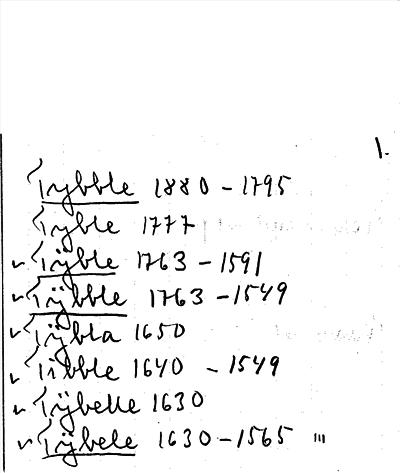 1.
Tybble 1880 - 1795
Tyble 1777
Tÿble 1763 - 1591
Tÿbble 1763 - 1549
Tÿbla 1650
Tibble 1640 - 1549
Tÿbelle 1630
Tÿbele 1630 - 1565 "'